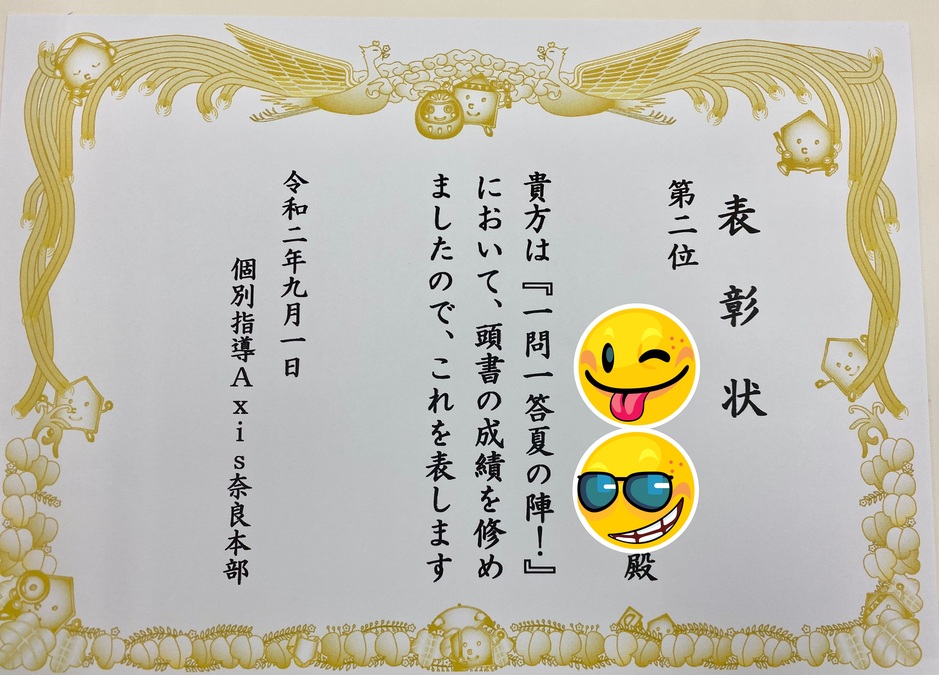 表彰状
第二位
殿
貴方は『一問一答夏の陣！』
において、頭書の成績を修め
ましたので、これを表します
令和二年九月一日
個別指導Ａｘｉｓ奈良本部